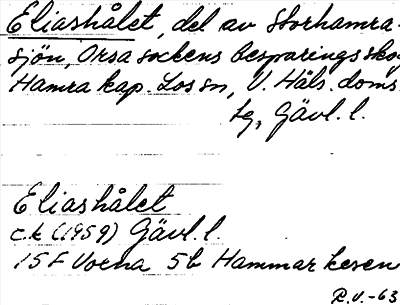 Eliashålet, del av Storhamra-
sjön, Orsa sockens besparingsskog
Hamra kap. Los sn, V. Häls. doms.
tg, Gävl. l.
Eliashålet
c.k (1959) Gävl. l.
15F Voxna 5b Hammarkesen
R.V.-63